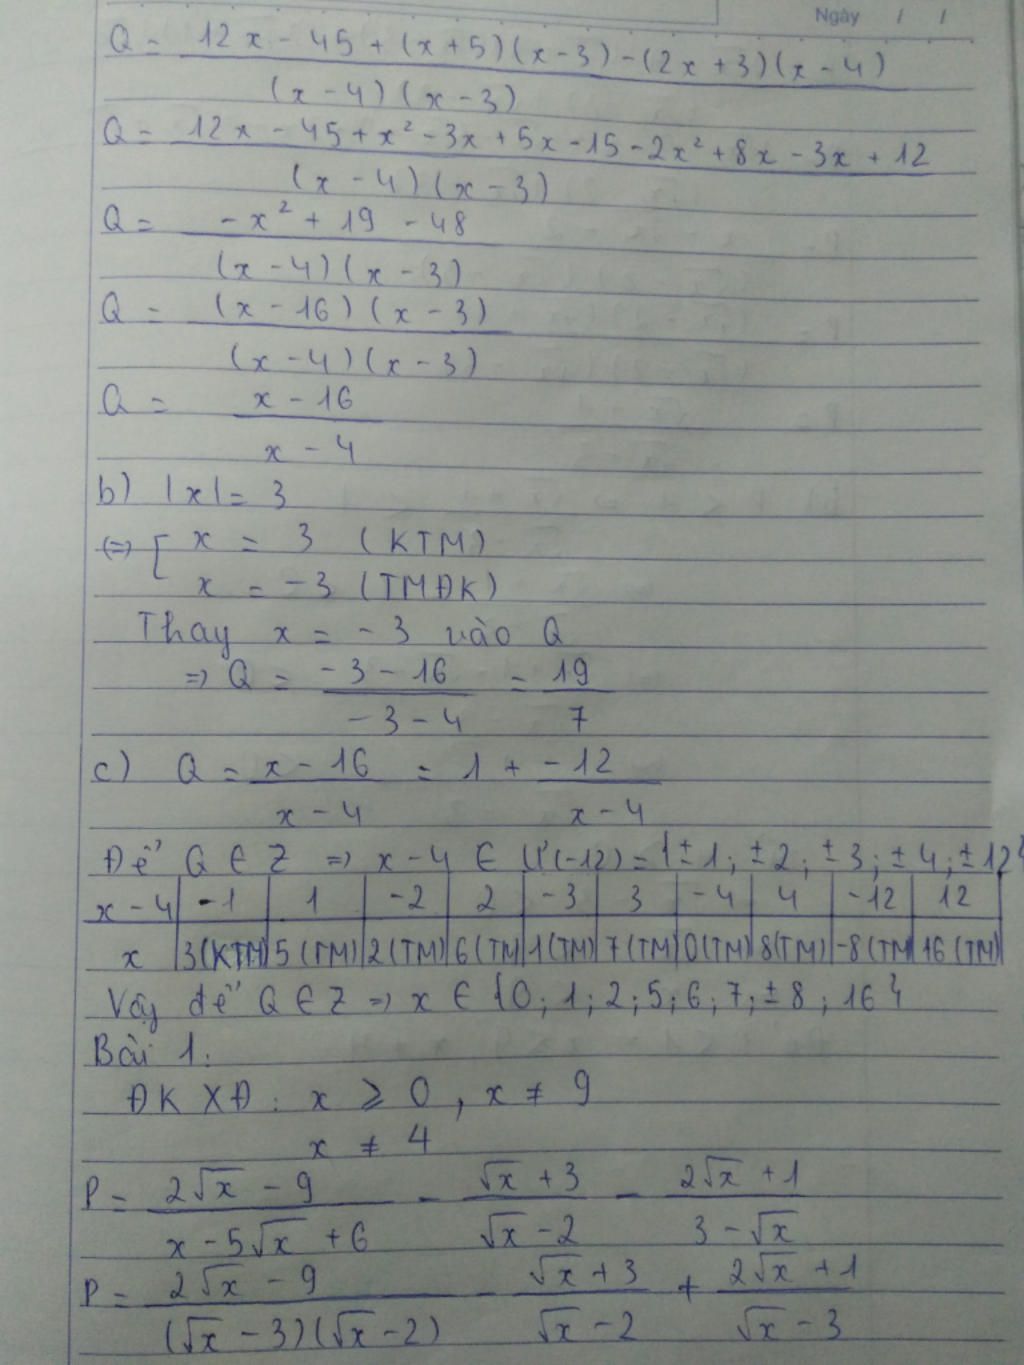 Ngày / /
Q = \frac{12x - 45 + (x + 5)(x - 3) - (2x + 3)(x - 4)}{(x - 4)(x - 3)}
Q = \frac{12x - 45 + x² - 3x + 5x - 15 - 2x² + 8x - 3x + 12}{(x - 4)(x - 3)}
Q = \frac{-x² + 19 - 48}{(x - 4)(x - 3)}
Q = \frac{(x - 16)(x - 3)}{(x - 4)(x - 3)}
Q = \frac{x - 16}{x - 4}
b) |x| = 3
<=> [ x = 3 (KTM)
x = -3 (TMĐK)
Thay x = -3 vào Q
=> Q = \frac{-3 - 16}{-3 - 4} = \frac{19}{7}
c) Q = \frac{x - 16}{x - 4} = 1 + \frac{-12}{x - 4}
Để Q ∈ Z => x - 4 ∈ Ư(-12) = {±1; ±2; ±3; ±4; ±12}
x - 4 | -1 | 1 | -2 | 2 | -3 | 3 | -4 | 4 | -12 | 12
x | 3(KTM) | 5(TM) | 2(TM) | 6(TM | 1(TM) | 7(TM) | 0(TM) | 8(TM) | -8(TM | 16(TM)
Vậy để Q ∈ Z => x ∈ {0; 1; 2; 5; 6; 7; ±8; 16}
Bài 1:
ĐKXĐ: x ⩾ 0, x ≠ 9
x ≠ 4
P = \frac{2√x - 9}{x - 5√x + 6} - \frac{√x + 3}{√x - 2} - \frac{2√x + 1}{3 - √x}
P = \frac{2√x - 9}{(√x - 3)(√x - 2)} - \frac{√x + 3}{√x - 2} + \frac{2√x + 1}{√x - 3}